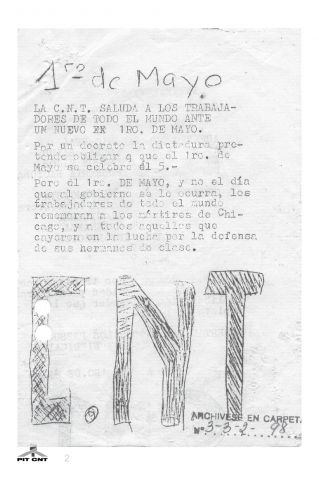 1ro de Mayo
LA C.N.T. SALUDA A LOS TRABAJA-
DORES DE TODO EL MUNDO ANTE
UN NUEVO 1RO. DE MAYO.
Por un decreto la dictadura pre-
tende obligar q que el 1ro. de
Mayo se celebre él 5.-
Pero él 1ro. DE MAYO, y no el día
que al gobierno se le ocurra, los
trabajadores de todo el mundo
rememoran a los mártires de Chi-
cago, y a todos aquellos que
cayeron en la lucha por la defensa
de sus hermanos de clase.
C.NT
ARCHIVESE EN CARPETA
Nº 3-3-2- 98
PIT CNT
2